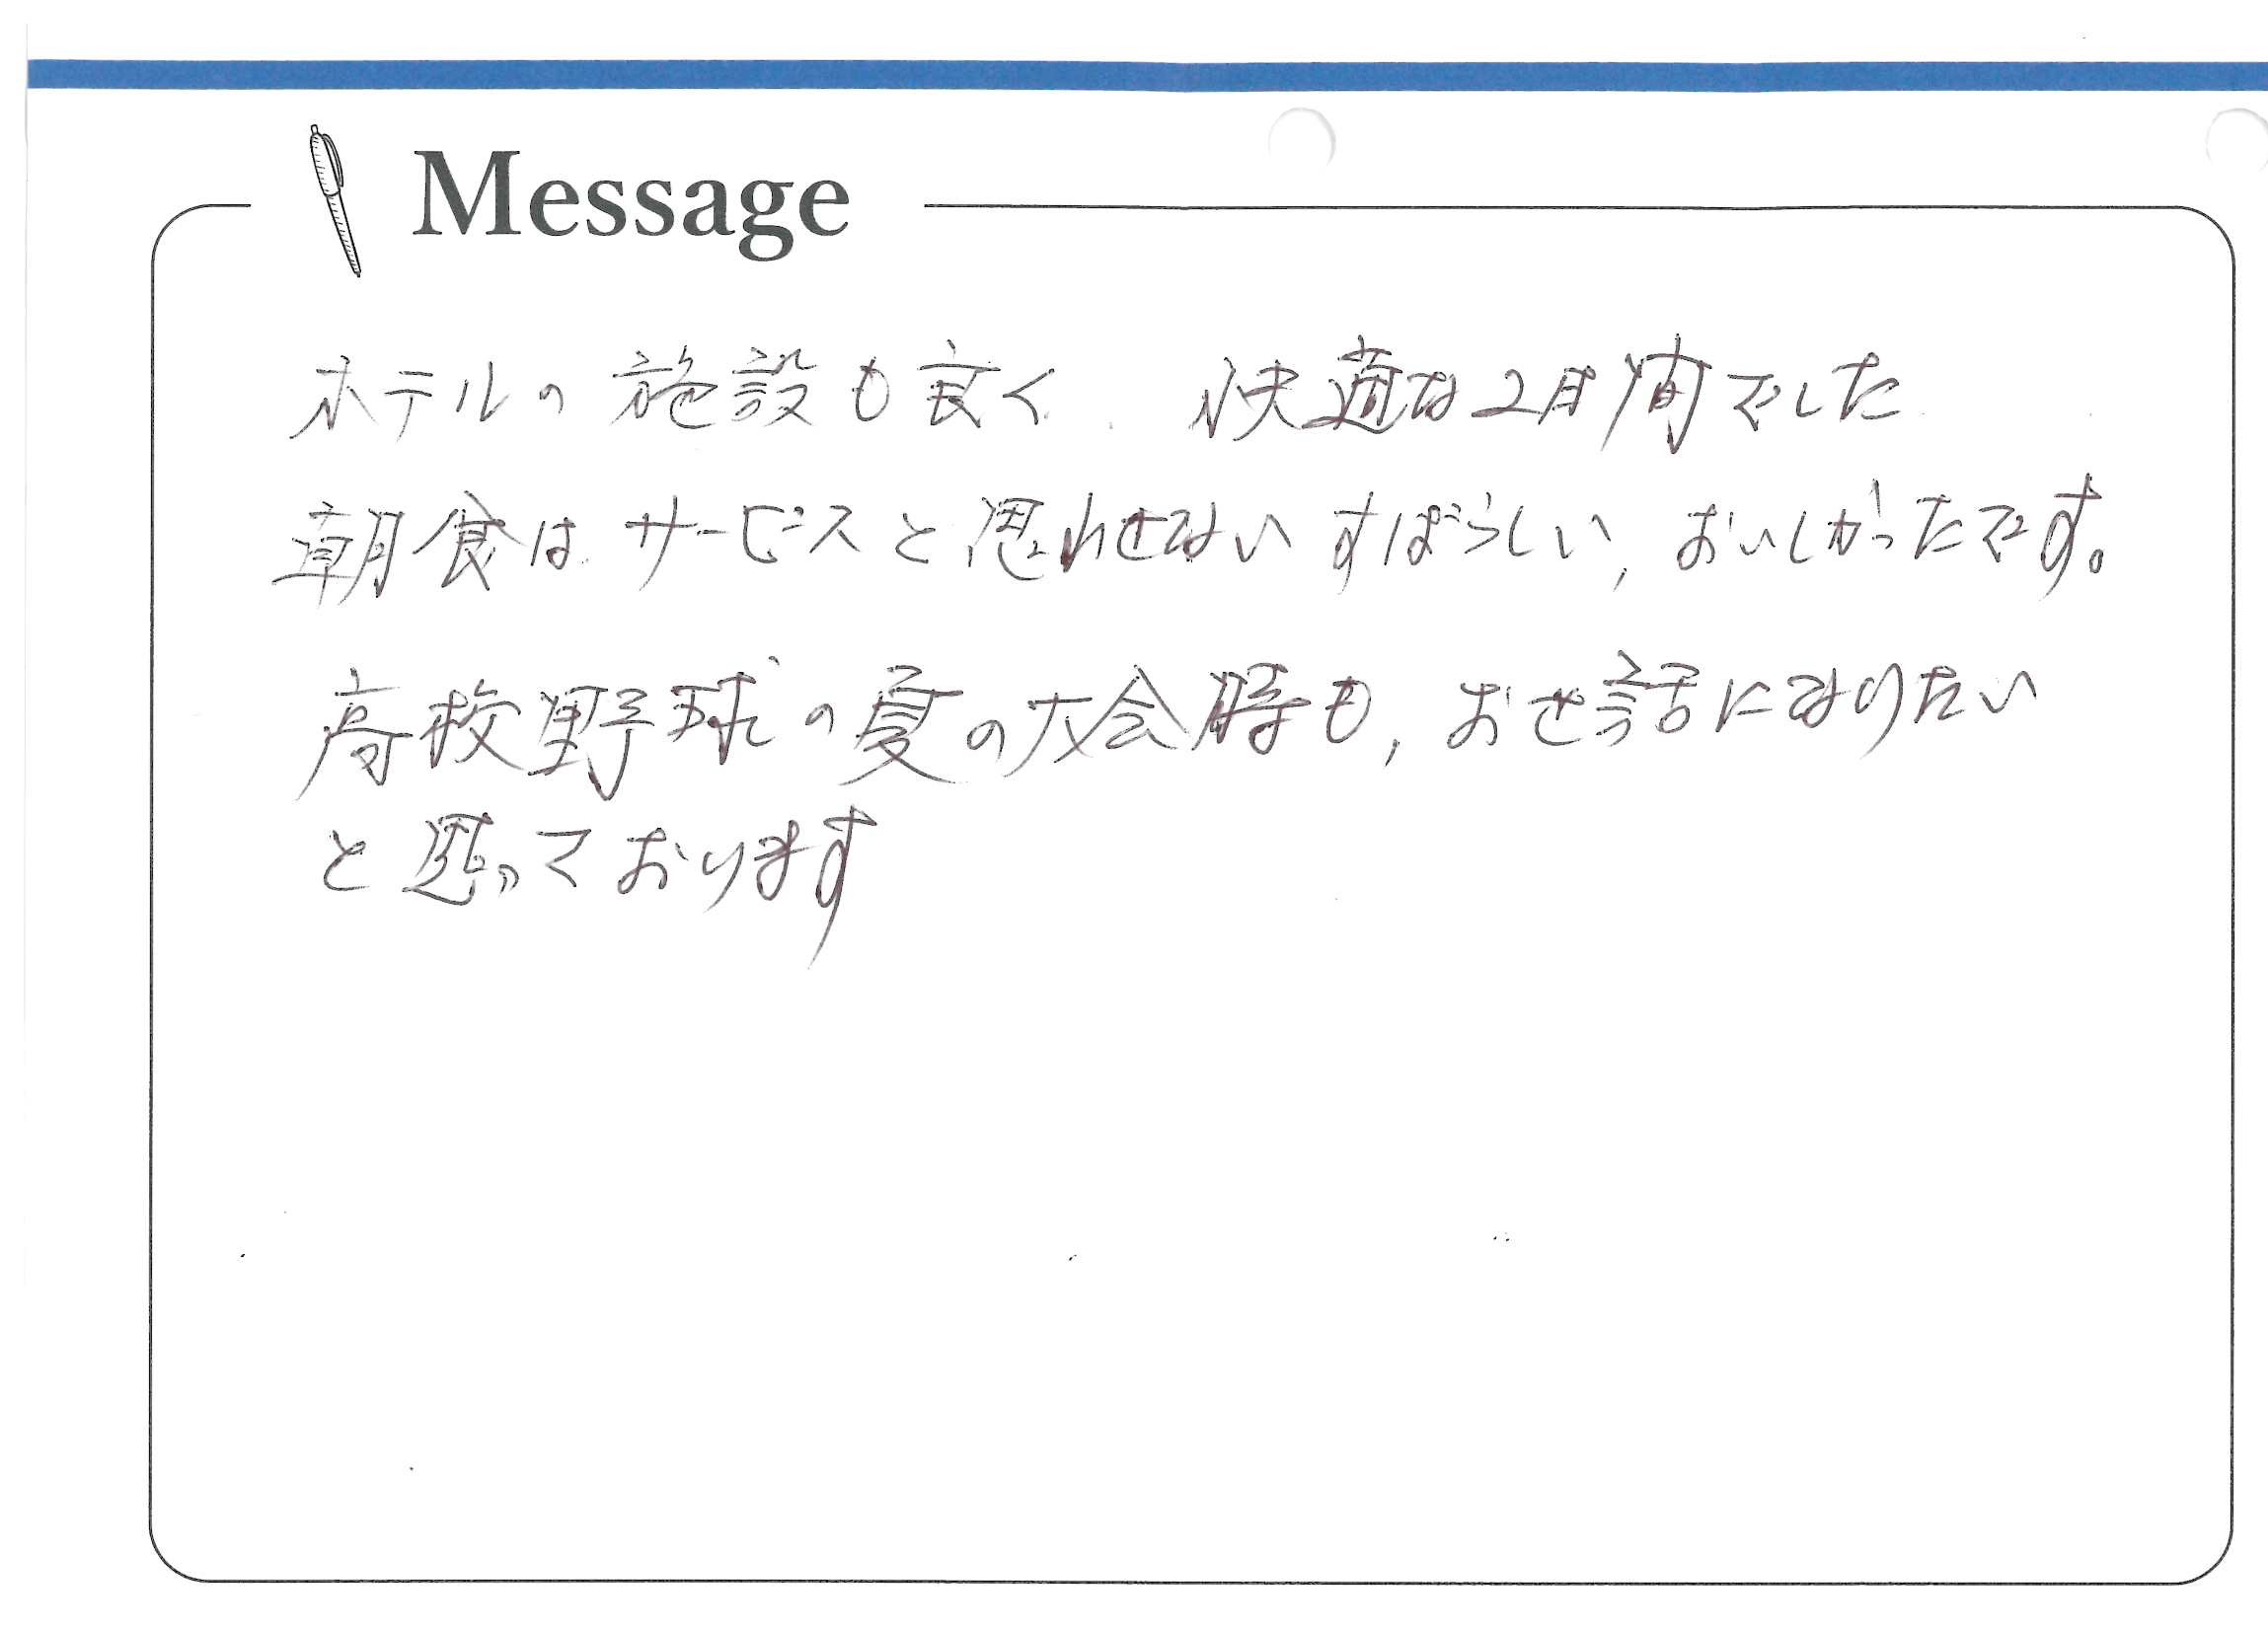 Message
ホテルの施設も良く 快適な2日間でした
朝食はサービスと思わせない すばらしい,おいしかったです。
高校野球の夏の大会時も,お世話になりたい
と思っております